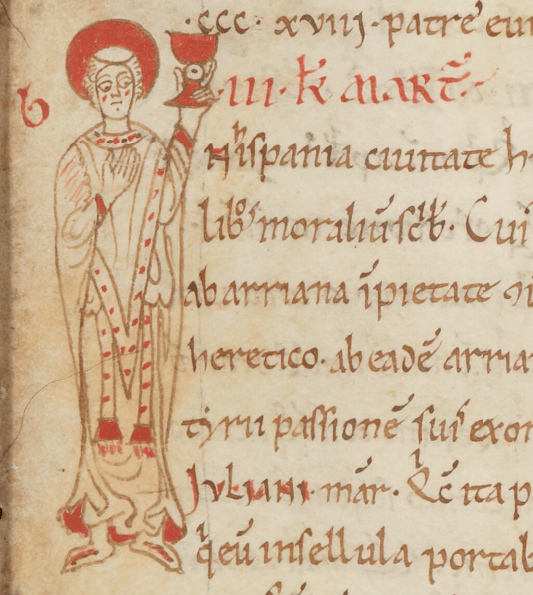 ·ccc· xviij· patrē
b
·iii· kł marr̄·
Nhispania ciuitate h
libº moraliū scb̄· Cui
ab arriana īpietate
heretico· ab eadē arria
tyrii passionē sui exor
Juliani mar̄· Qc̄ ita p
q̄ eū in sellula portab